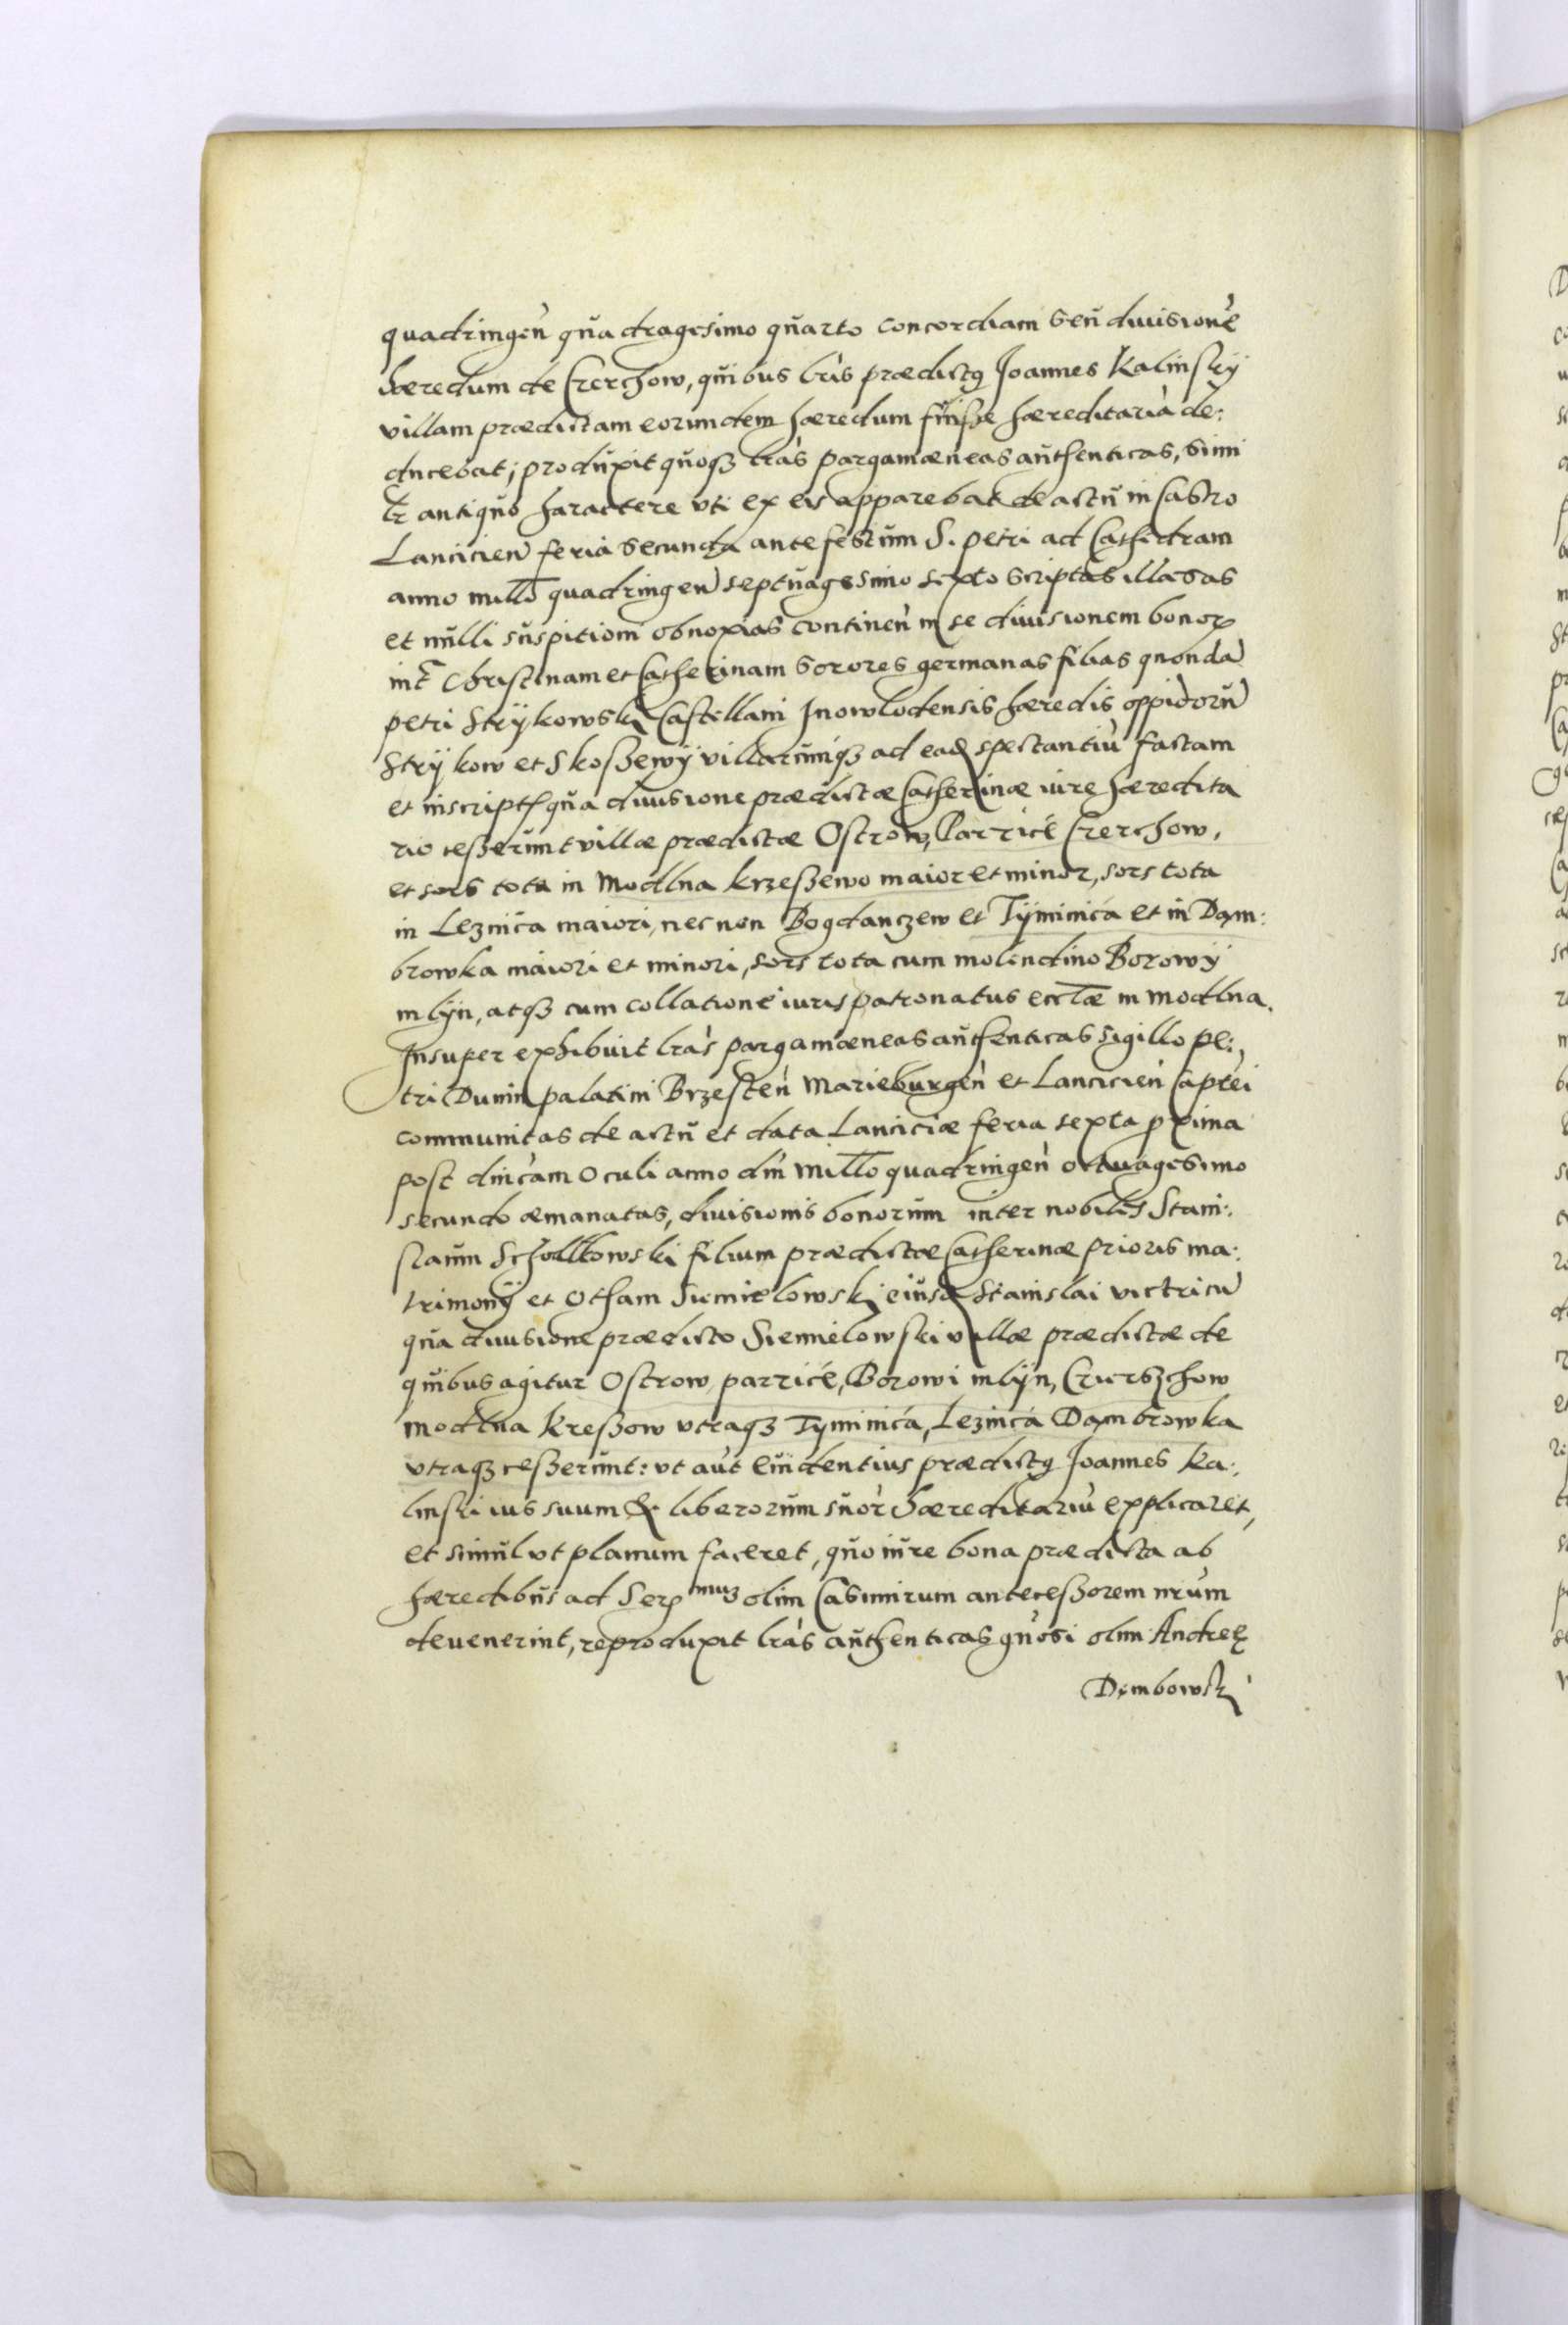 quadringeǹ quadragesimo quarto concordiam seu diuisionè
hæredum de Czerchow, quibus lrìs prædictꝰ Joannes Kalinskÿ
villam prædictam eorundem hæredum fuisse hæreditarià de:
ducebat; produxit quoqꝫ lràs pargamæneas authenticas, simi
lr̃ antiquo haractere vti ex eis apparebat de actu in Castro
Lancicieǹ feria secunda ante festum S. petri ad Cathedram
anno millo quadringeǹ septuagesimo sexto scriptas illæsas
et nulli suspitioni obnoxias contineǹ in se diuisionem bonoꝝ
int̃ Christinam et Catherinam sorores germanas filias quondà
petri Strÿkowski Castellani Jnowlodensis hæredis oppidorù
Strÿkow et Skoßewÿ villarumqꝫ ad eaꝺ spectantiù factam
et inscriptꝭ qua diuisione prædictæ Catherinæ iure hæredita
rio ceßerunt villæ prædictæ Ostrow, Parzicé Czerchow,
et sors tota in Modlna Krzeßewo maior et minor, sors tota
in Leznica maiori, nec non Bogdanczew et Tÿminica et in Dąm:
browka maiori et minori, sors tota cum molendino Borowÿ
mlÿn, atqꝫ cum collatione iurispatronatus eccl̃æ in modlna.
Jnsuper exhibuit lràs pargamæneas authenticas sigillo pe:
tri Dunin palatini Brzesteǹ Marieburgeǹ et Lancicieǹ Captẽi
communitas de actu et data Lanciciæ feria sexta ꝓxima
post dnìcam Oculi anno dnì Millo quadringeǹ octuagesimo
secundo æmanatas, diuisionis bonorum inter nobiles Stani:
slaum Scholkowski filium prædictæ Catherinæ prioris ma:
trimonÿ et Otham Siemielowski eiusꝺ Stanislai victricù
qua diuisione prædicto Siemielowski villæ prædictæ de
quibus agitur Ostrow parzicé, Borowi mlÿn, Czierszchow
modlna Kreßow vtraqꝫ Tyminica, Leznica Dąmbrowka
vtraqꝫ ceßerunt: vt aùt euidentius prædictꝰ Joannes Ka:
linski ius suum & liberorum suor̀ hæreditariù explicaret,
et simul vt planum faceret, quo iure bona prædicta ab
hæredibus ad Serᵐᵘᵐ olim Casimirum anteceßorem nrùm
deuenerint, reproduxit lràs authenticas gǹosi olim Andreę
Dęmbowski